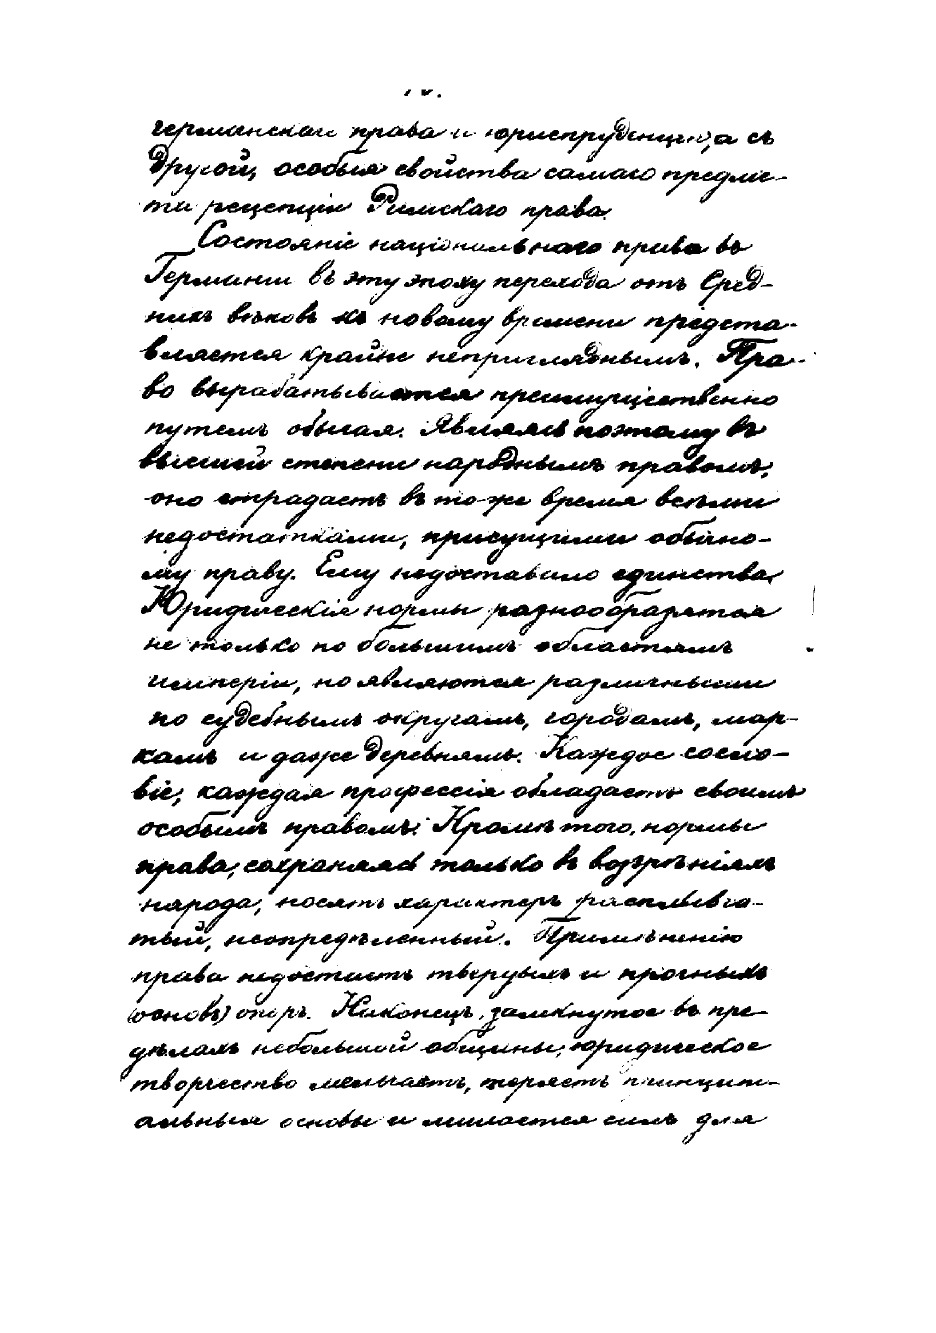 германскаи права и юриспруденции, а съ
другой, особыя свойства самаго предме-
та рецепціи Римскаго права.
Состояніе національнаго права въ
Германіи въ эту эпоху перехода отъ Сред-
нихъ вѣковъ къ новому времени предста-
вляется крайне непригляднымъ. Пра-
во вырабатывается преимущественно
путемъ обычая. Являясь поэтому въ
высшей степени народнымъ правомъ,
оно страдаетъ въ то же время всѣми
недостатками, присущими обычно-
му праву. Ему недоставало единства.
Юридическія нормы разнообразятся
не только по большимъ областямъ
имперіи, но являются различными
по судебнымъ округамъ, городамъ, мар-
камъ и даже деревнямъ. Каждое сосло-
віе, каждая профессія обладаетъ своимъ
особымъ правомъ. Кромѣ того, нормы
права, сохраняясь только въ воззрѣніяхъ
народа, носятъ характеръ расплывча-
тый, неопредѣленный. Примѣненію
права недостаетъ твердыхъ и прочныхъ
(основъ) опоръ. Наконецъ, замкнутое въ пре-
дѣлахъ небольшой общины, юридическое
творчество мельчаетъ, теряетъ принципі-
альныя основы и лишается силъ для